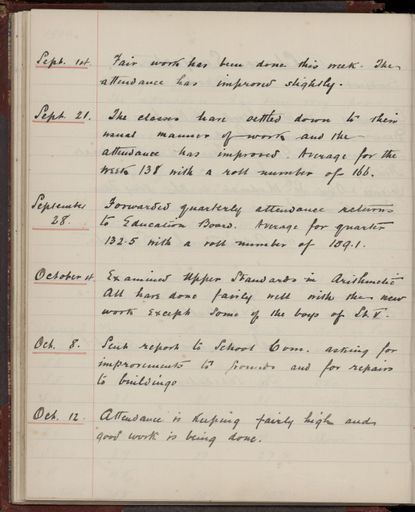 Sept. 1st. Fair work has been done this week. The
attendance has improved slightly.
Sept. 21. The classes have settled down to their
usual manner of work and the
attendance has improved. Average for the
week 138 with a roll number of 166.
September Forwarded quarterly attendance returns
28. to Education Board. Average for quarter
132.5 with a roll number of 159.1.
October 1st. Examined Upper Standards in Arithmetic
All have done fairly well with the new
work except some of the boys of St. V.
Oct. 8. Sent report to School Com. asking for
improvements to grounds and for repairs
to buildings
Oct. 12. Attendance is keeping fairly high and
good work is being done.